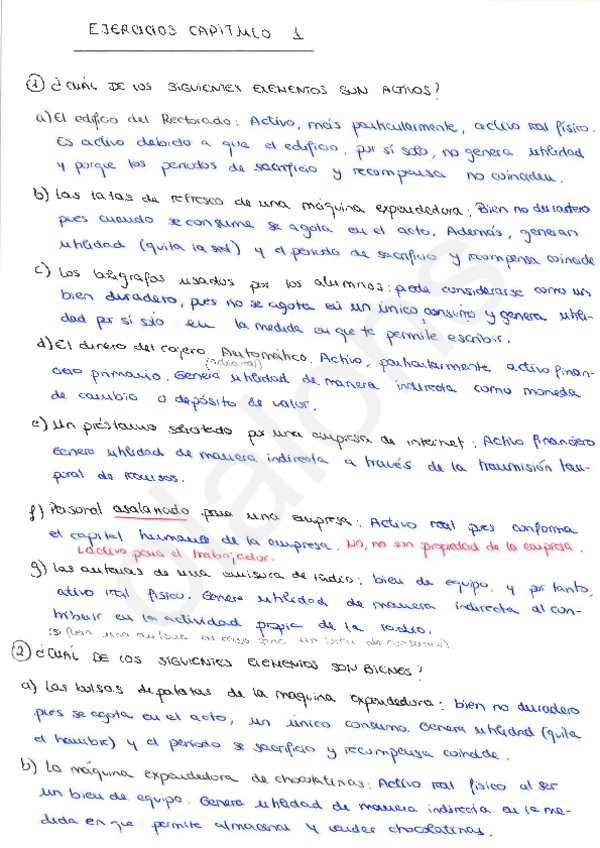 EJERCICIOS CAPÍTULO 1
① ¿CUÁL DE LOS SIGUIENTES ELEMENTOS SON ACTIVOS?
a) El edificio del Rectorado: Activo, más particularmente, activo real físico.
Es activo debido a que el edificio, por sí solo, no genera utilidad
y porque los periodos de sacrificio y recompensa no coinciden.
b) Las latas de refresco de una máquina expendedora: Bien no duradero
pues cuando se consume se agota en el acto. Además, generan
utilidad (quita la sed) y el periodo de sacrificio y recompensa coincide
c) Los bolígrafos usados por los alumnos: podía considerarse como un
bien duradero, pues no se agota en un único consumo y genera utili-
dad por sí solo en la medida en que te permite escribir.
d) El dinero del cajero Automático. Activo, particularmente activo finan-
ciero primario. Genera utilidad de manera indirecta como moneda
de cambio o depósito de valor.
e) Un préstamo solicitado por una empresa de internet: Activo financiero
Genera utilidad de manera indirecta a través de la transmisión tem-
poral de recursos.
f) Personal asalariado para una empresa: Activo real pues conforma
el capital humano de la empresa. No, no son propiedad de la empresa.
activo para el trabajador.
g) Las antenas de una emisora de radio: bien de equipo, y por tanto,
activo real físico. Genera utilidad de manera indirecta al con-
tribuir en la actividad propia de la radio.
② ¿CUÁL DE LOS SIGUIENTES ELEMENTOS SON BIENES?
a) Las bolsas de patatas de la máquina expendedora: bien no duradero
pues se agota en el acto, un único consumo. Genera utilidad (quita
el hambre) y el periodo se sacrificio y recompensa coincide.
b) La máquina expendedora de chocolatinas: Activo real físico al ser
un bien de equipo. Genera utilidad de manera indirecta en la me-
dida en que permite almacenar y vender chocolatinas.